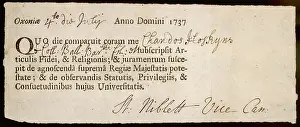 Oxoniæ 4to die Julij Anno Domini 1737
QUO die comparuit coram me Chandos Hoskyns
è Coll: Ball: Bartti Fil: & Subscripsit Ar-
ticulis Fidei, & Religionis; & juramentum susce-
pit de agnoscendâ supremâ Regiæ Majestatis pote-
state; & de observandis Statutis, Privilegiis, &
Consuetudinibus hujus Universitatis.
St. Niblett Vice Can